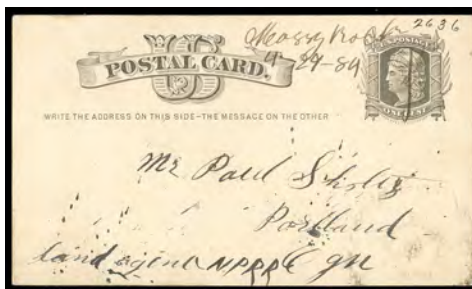 2636
Mossy Rock
4-29-89
US
POSTAL CARD.
U.S. POSTAGE
ONE CENT
WRITE THE ADDRESS ON THIS SIDE-THE MESSAGE ON THE OTHER
Mr Paul Shulz
Portland
land agent NPRR Ogn